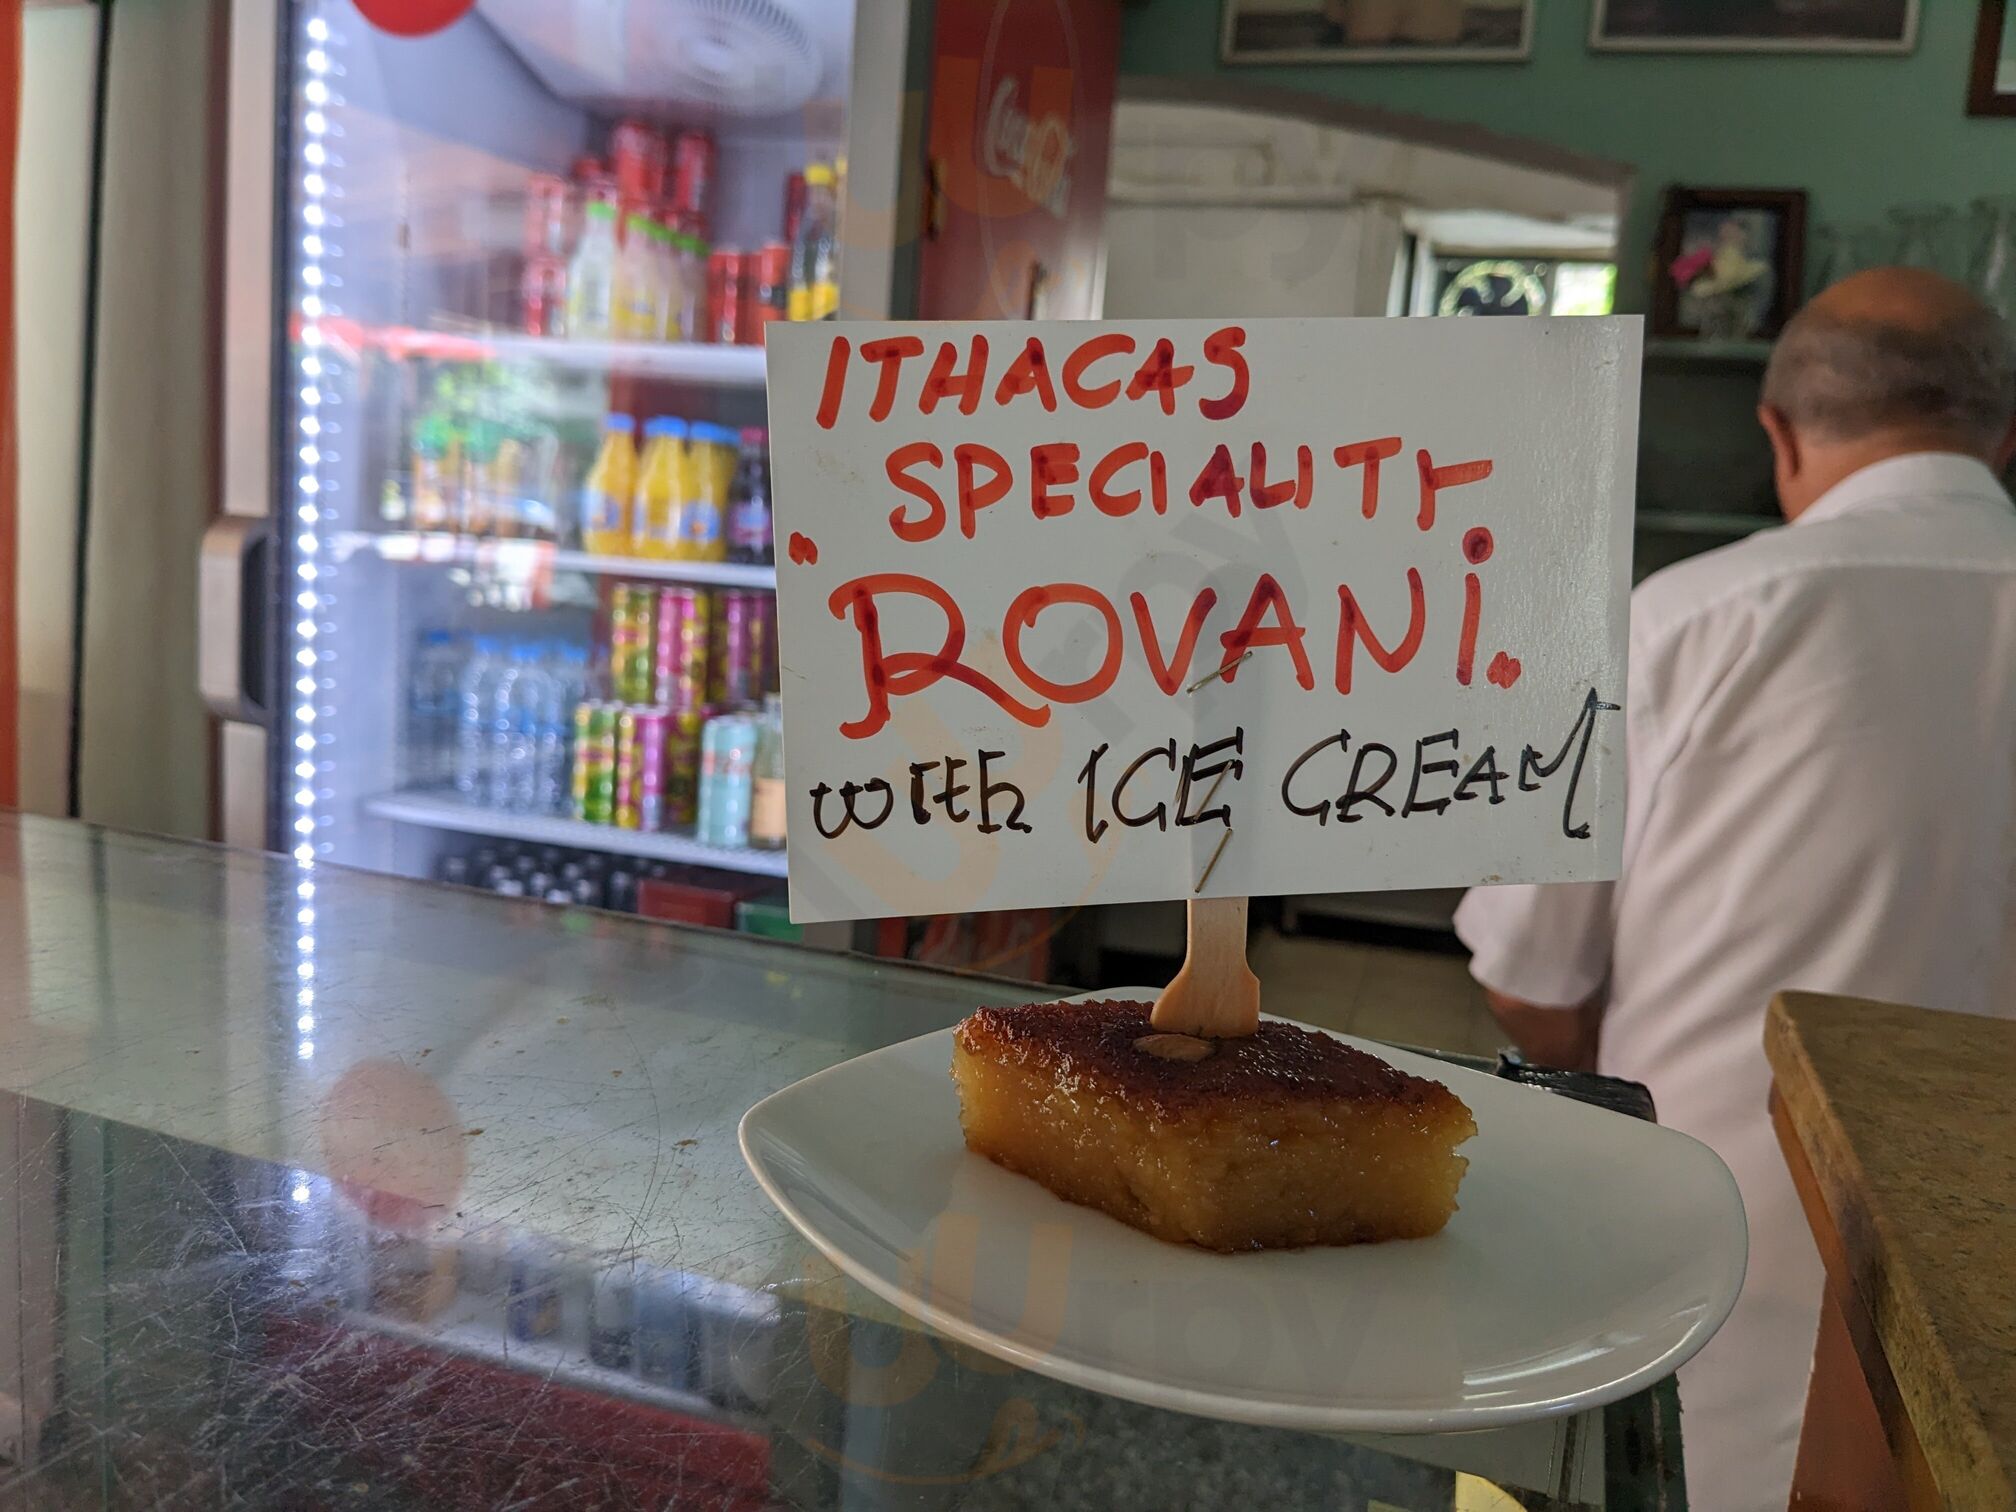 ITHACAS
SPECIALITY
"ROVANi"
WITH ICE CREAM
Coca-Cola